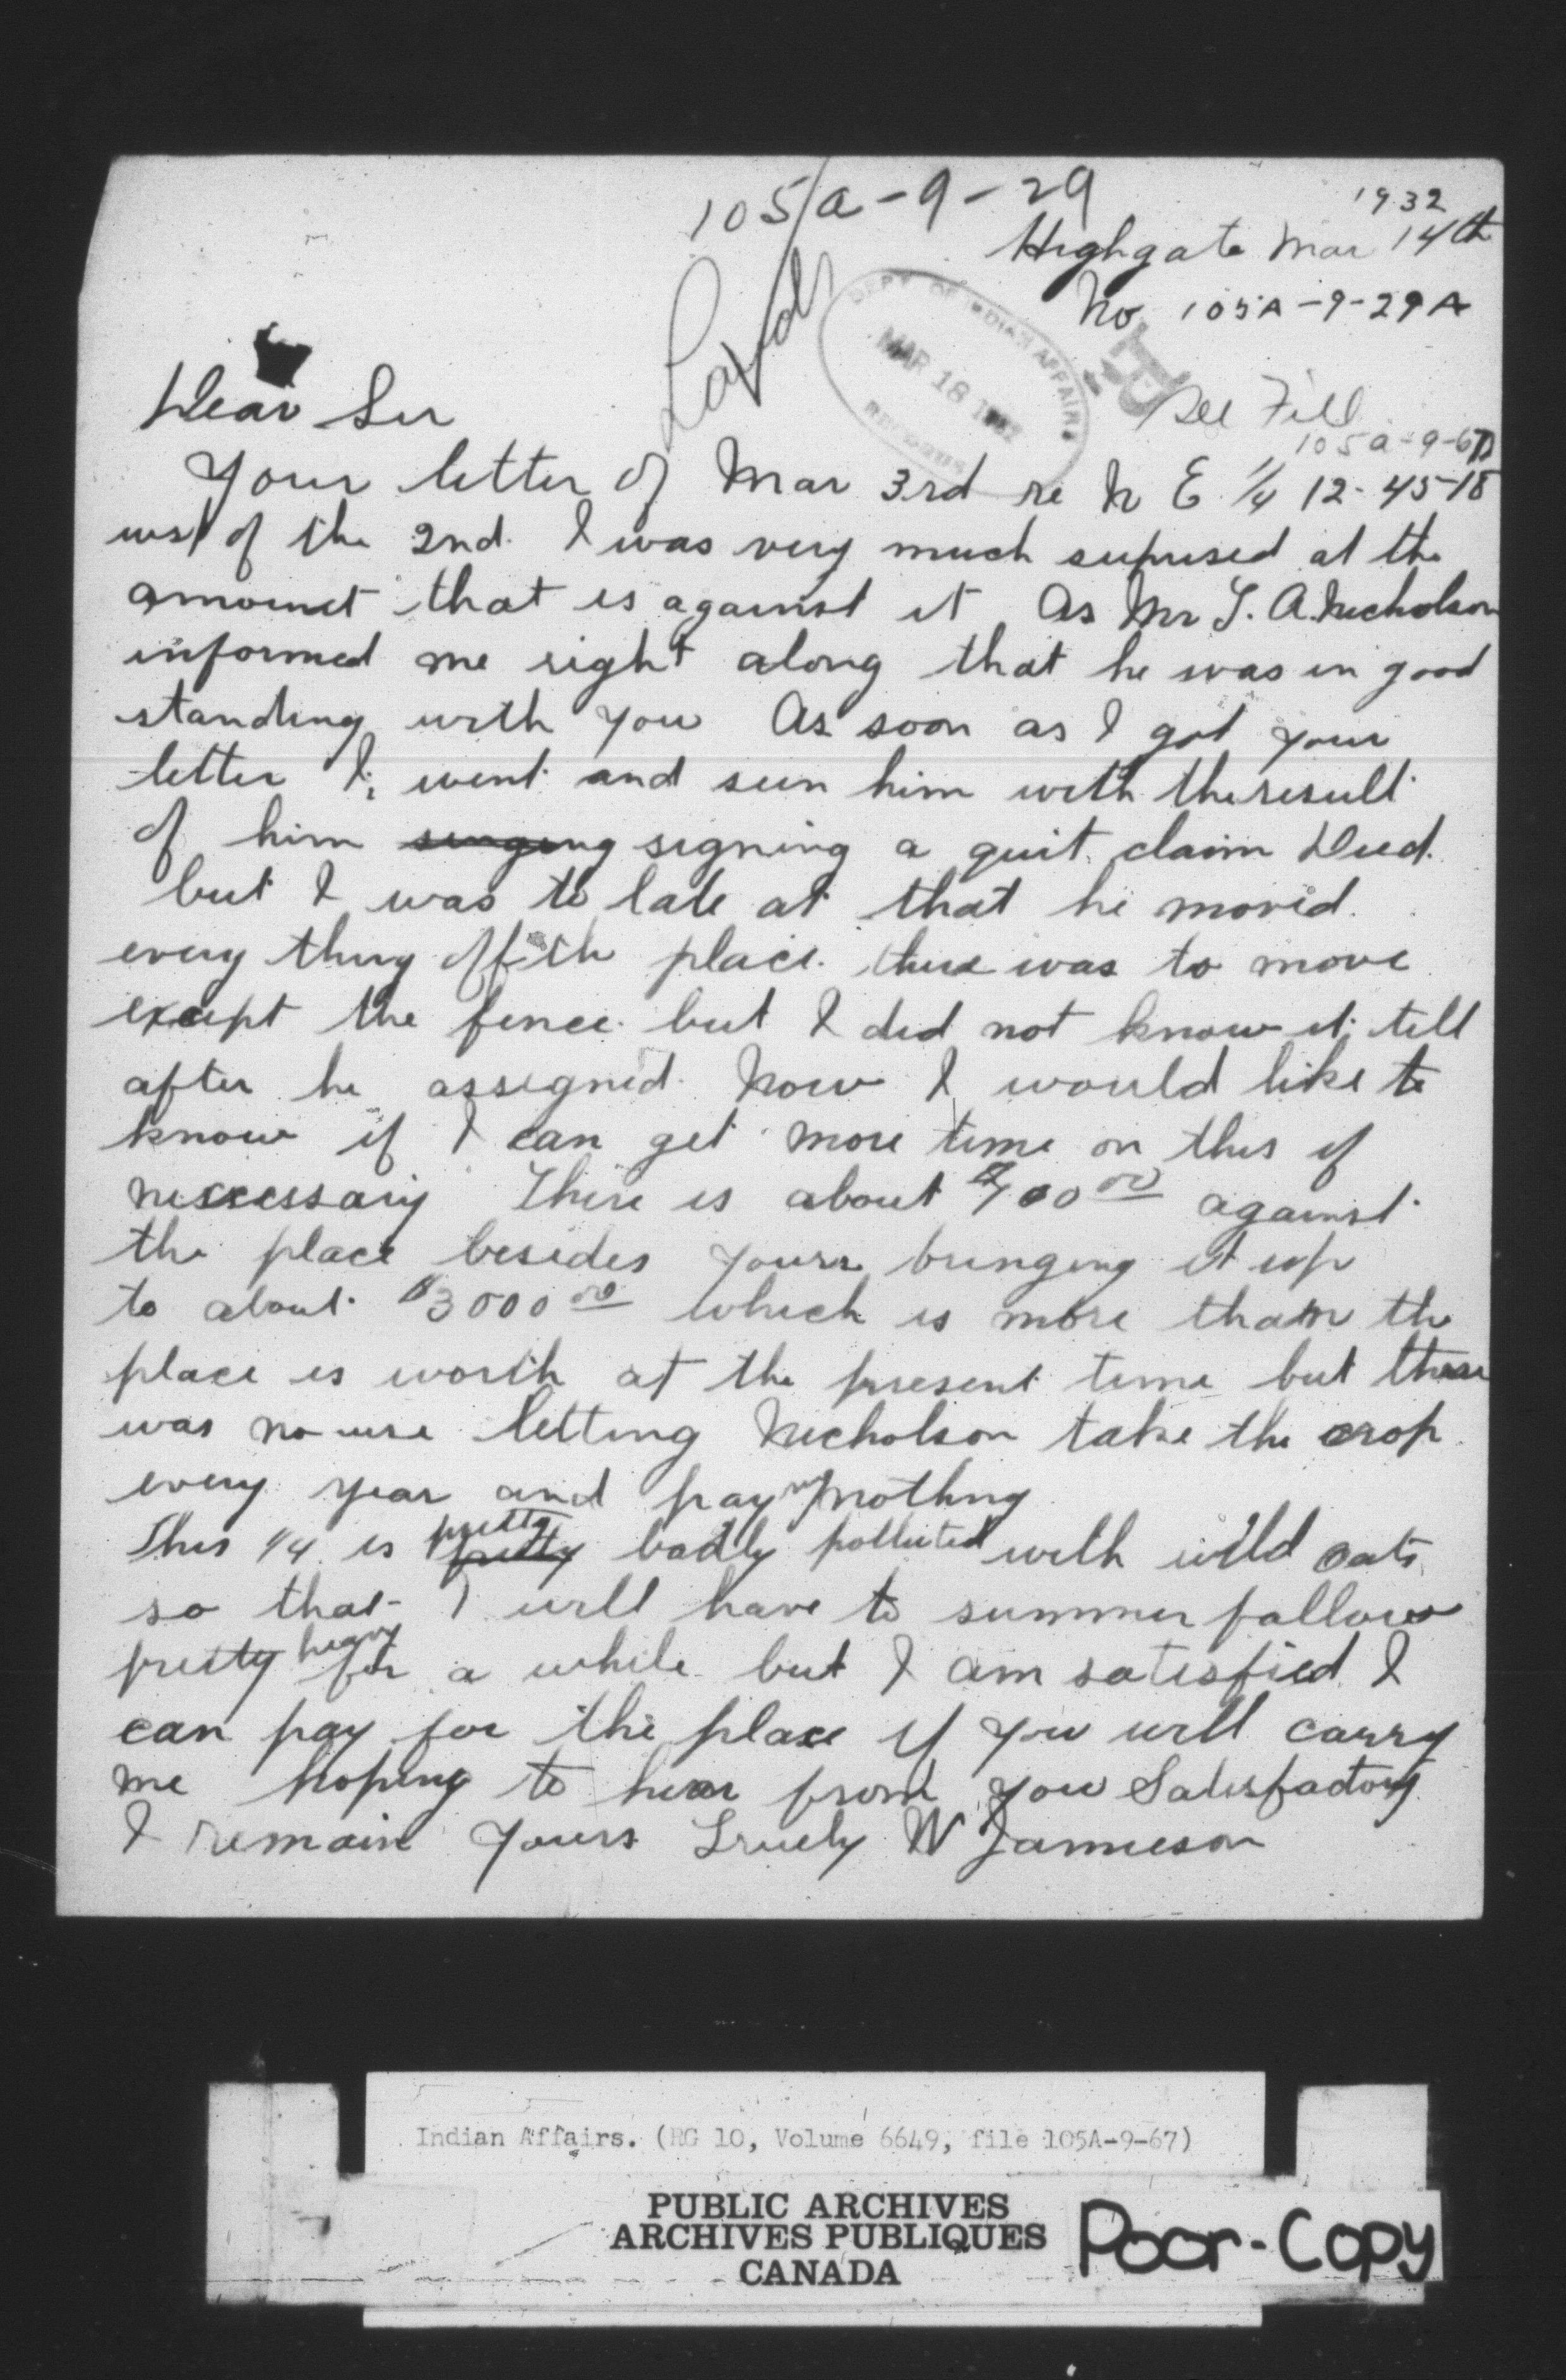 105/a-9-29
1932
Highgate Mar 14th
No 105A-9-29A
Lands
DEPT OF INDIAN AFFAIRS
MAR 18 1932
RECORDS
See File
105a-9-67
Dear Sir
Your letter of Mar 3rd re N E 1/4 12-45-18
west of the 2nd. I was very much supprised at the
amount that is against it As Mr T. A. Nicholson
informed me right along that he was in good
standing with you As soon as I got your
letter I went and seen him with the result
of him singing signing a quit claim Deed.
but I was to late at that he moved
every thing off the place there was to move
except the fence but I did not know it till
after he assigned Now I would like to
know if I can get more time on this if
nessessary There is about $700 00 against
the place besides yours bringing it up
to about $3000 00 which is more than the
place is worth at the present time but there
was no use letting Nicholson take the crop
every year and pay nothing
This 1/4 is pretty pretty badly polluted with wild oats
so that I will have to summer fallow
pretty heavy for a while but I am satisfied I
can pay for the place if you will carry
me hoping to hear from you Satisfactory
I remain Yours Truely W Jamieson
Indian Affairs. (RG 10, Volume 6649, file 105A-9-67)
PUBLIC ARCHIVES
ARCHIVES PUBLIQUES
CANADA
Poor-Copy